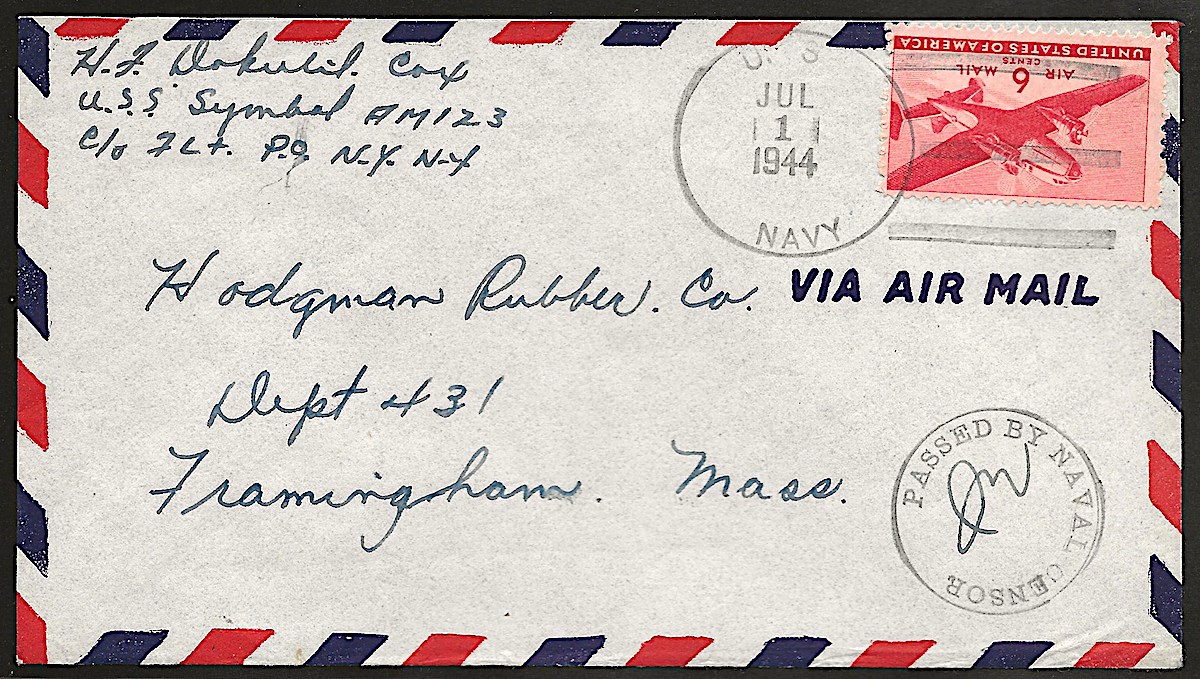 H.F. Dokulil. Cox
U.S.S. Symbol AM123
C/o Flt. P.O. N.Y. N-Y
U. S.
JUL
1
1944
NAVY
UNITED STATES OF AMERICA
AIR 6 MAIL
CENTS
Hodgman Rubber. Co.
VIA AIR MAIL
Dept 431
Framingham. Mass.
PASSED BY NAVAL CENSOR